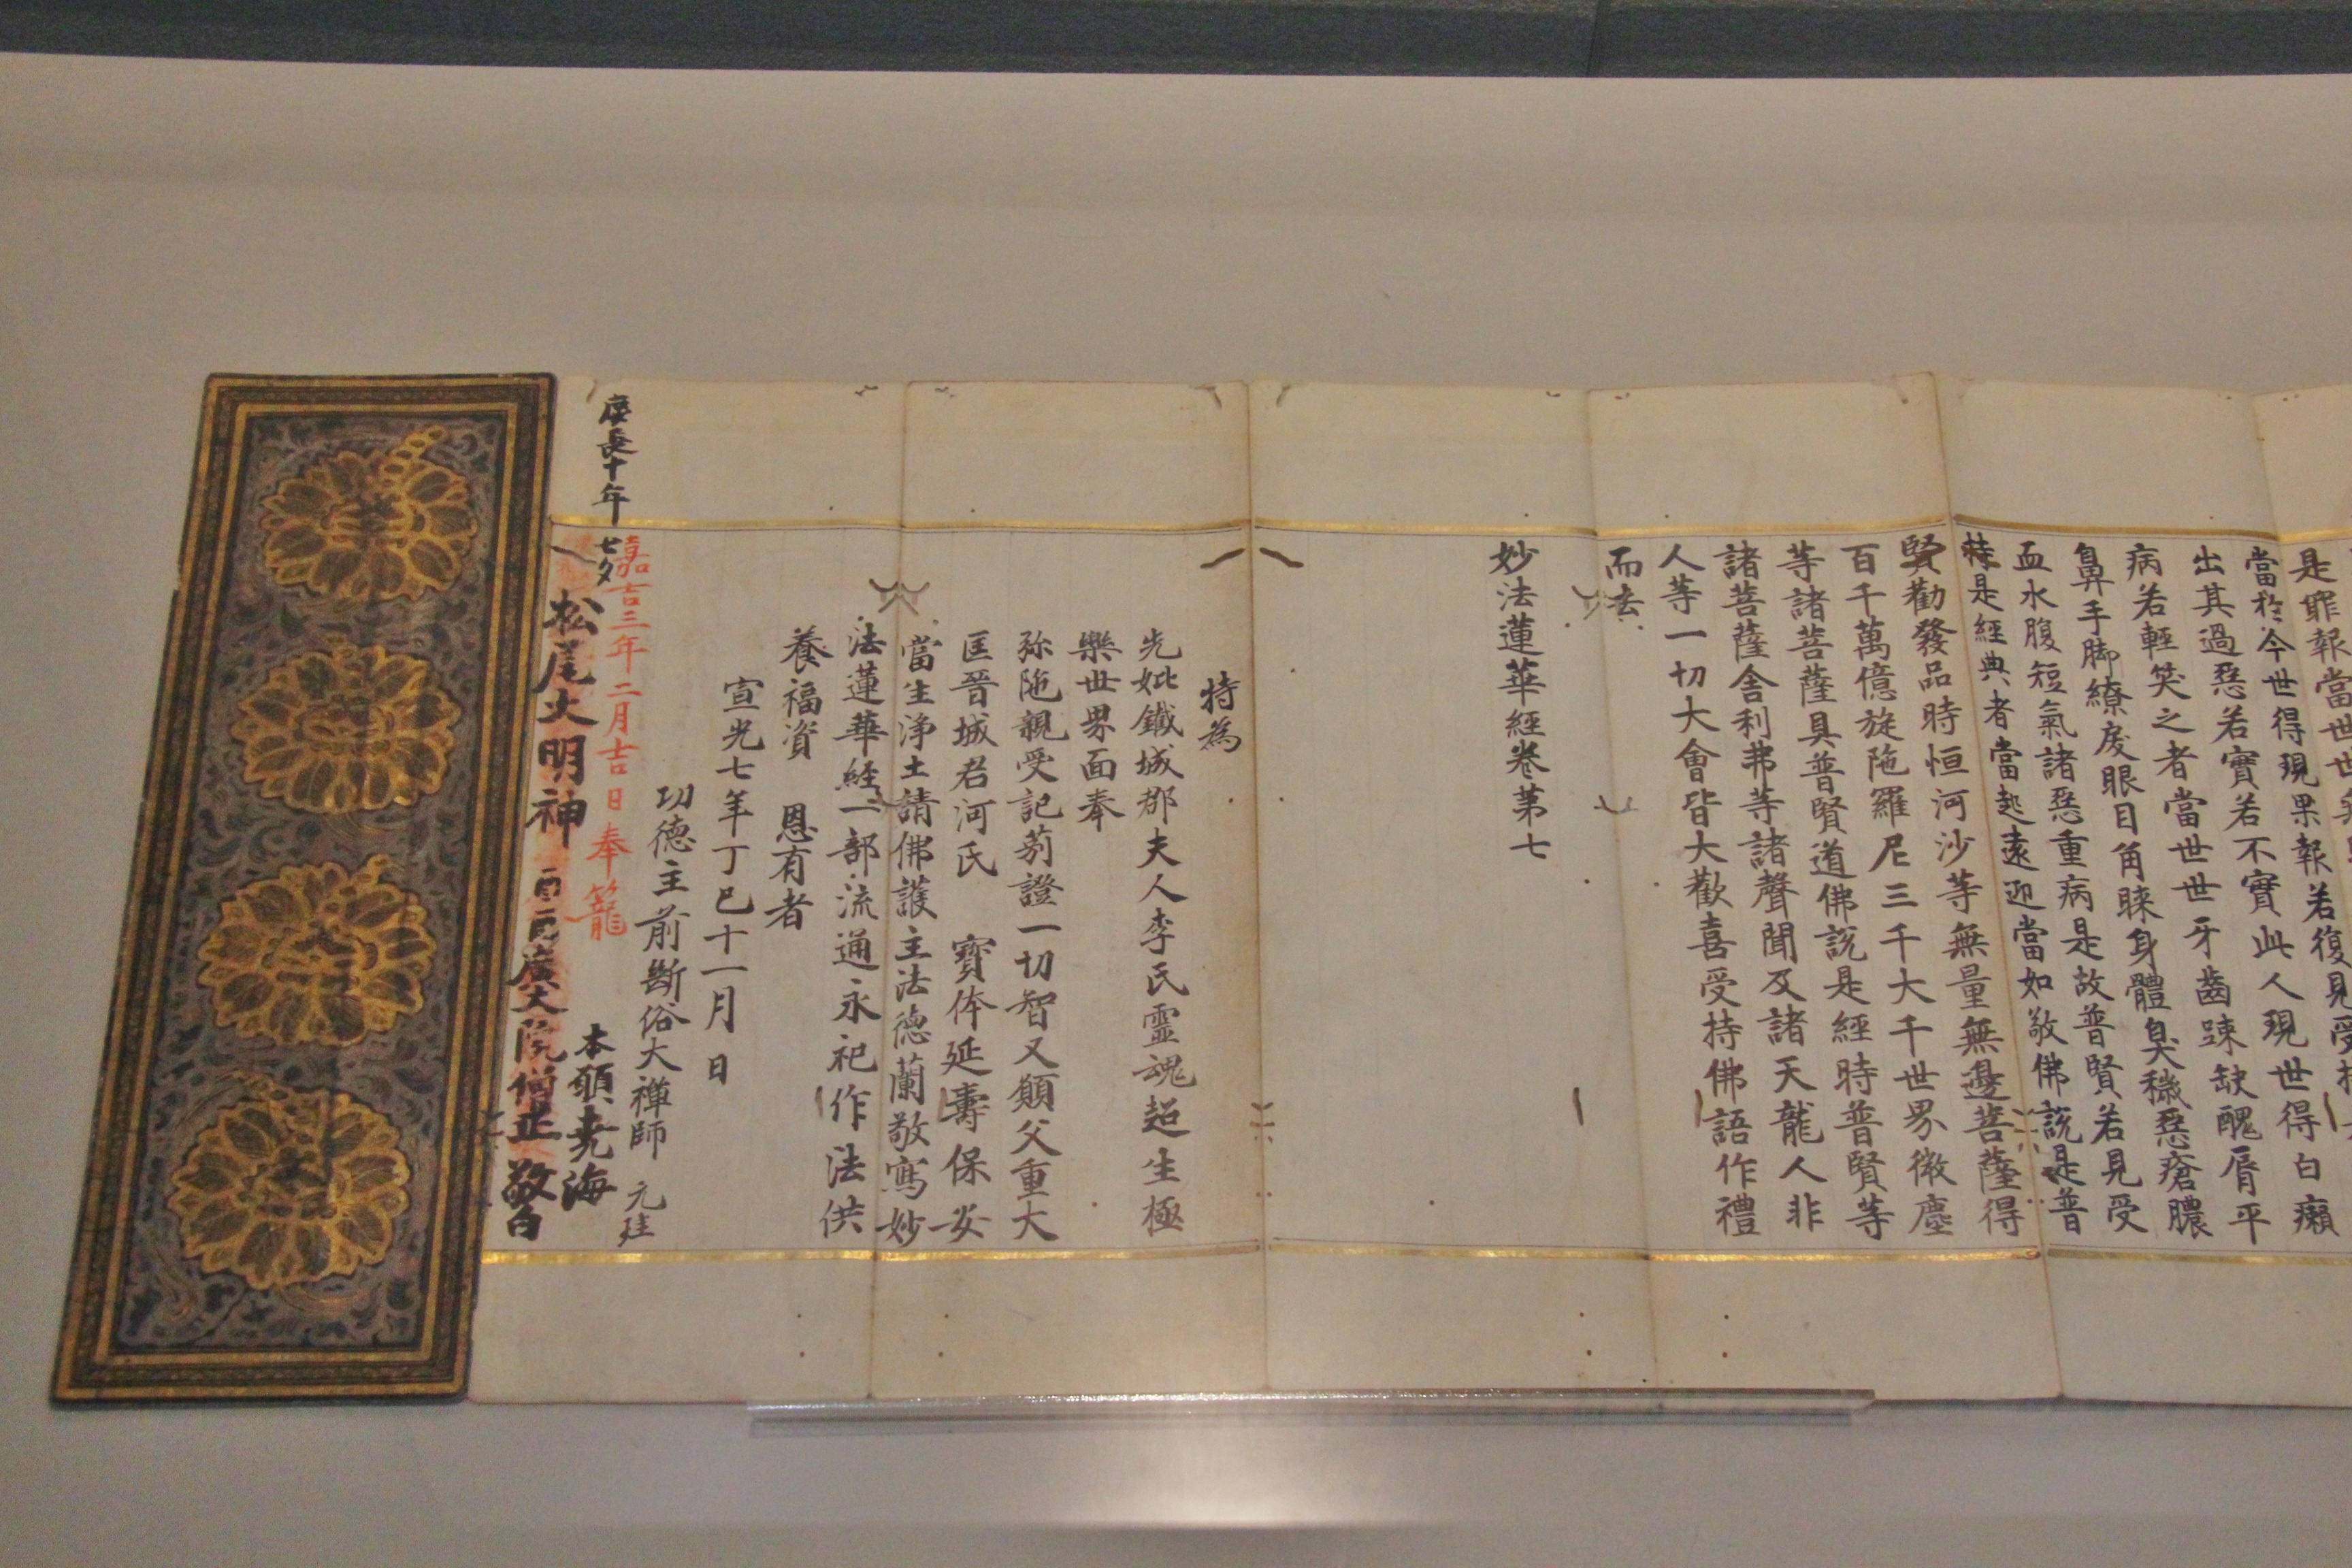 是罪報當世世無
當於今世得現果報若復見受持
出其過惡若實若不實此人現世得白癩
病若輕笑之者當世世牙齒踈缺醜脣平
鼻手脚繚戾眼目角睞身體臭穢惡瘡膿
血水腹短氣諸惡重病是故普賢若見受
持是經典者當起遠迎當如敬佛說是普
賢勸發品時恒河沙等無量無邊菩薩得
百千萬億旋陁羅尼三千大千世界微塵
等諸菩薩具普賢道佛說是經時普賢等
諸菩薩舍利弗等諸聲聞及諸天龍人非
人等一切大會皆大歡喜受持佛語作禮
而去
妙法蓮華經卷苐七
特為
先妣鐵城郡夫人李氏靈魂超生極
樂世界面奉
弥陁親受記莂證一切智又願父重大
匡晉城君河氏 寶体延壽保安
當生淨土請佛護主法德蘭敬寫妙
法蓮華経一部流通永祀作法供
養福資 恩有者
宣光七年丁巳十一月 日
功德主前斷俗大禅師 元珪
嘉吉三年二月吉日奉籠
本願堯海
慶長十年七夕
松尾大明神 廣大院僧正敬白